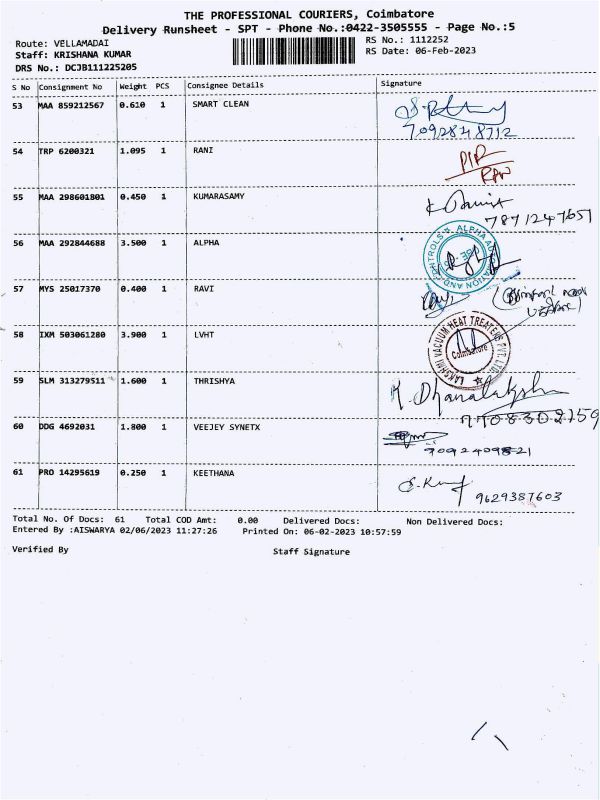 THE PROFESSIONAL COURIERS, Coimbatore
Delivery Runsheet - SPT - Phone No.:0422-3505555 - Page No.:5
Route: VELLAMADAI RS No.: 1112252
Staff: KRISHANA KUMAR RS Date: 06-Feb-2023
DRS No.: DCJB111225205
S No Consignment No Weight PCS Consignee Details Signature
53 MAA 859212567 0.610 1 SMART CLEAN
7092848712
54 TRP 6200321 1.095 1 RANI
55 MAA 298601801 0.450 1 KUMARASAMY
7871247651
56 MAA 292844688 3.500 1 ALPHA
57 MYS 25017370 0.400 1 RAVI
58 IXM 503061280 3.900 1 LVHT
LAKSHMI VACUUM HEAT TREATERS PVT. LTD.
Coimbatore
59 SLM 313279511 1.600 1 THRISHYA
K. Dhanalakshmi
7708302759
60 DDG 4692031 1.800 1 VEEJEY SYNETX
7092409821
61 PRO 14295619 0.250 1 KEETHANA
9629387603
Total No. Of Docs: 61 Total COD Amt: 0.00 Delivered Docs: Non Delivered Docs:
Entered By :AISWARYA 02/06/2023 11:27:26 Printed On: 06-02-2023 10:57:59
Verified By Staff Signature